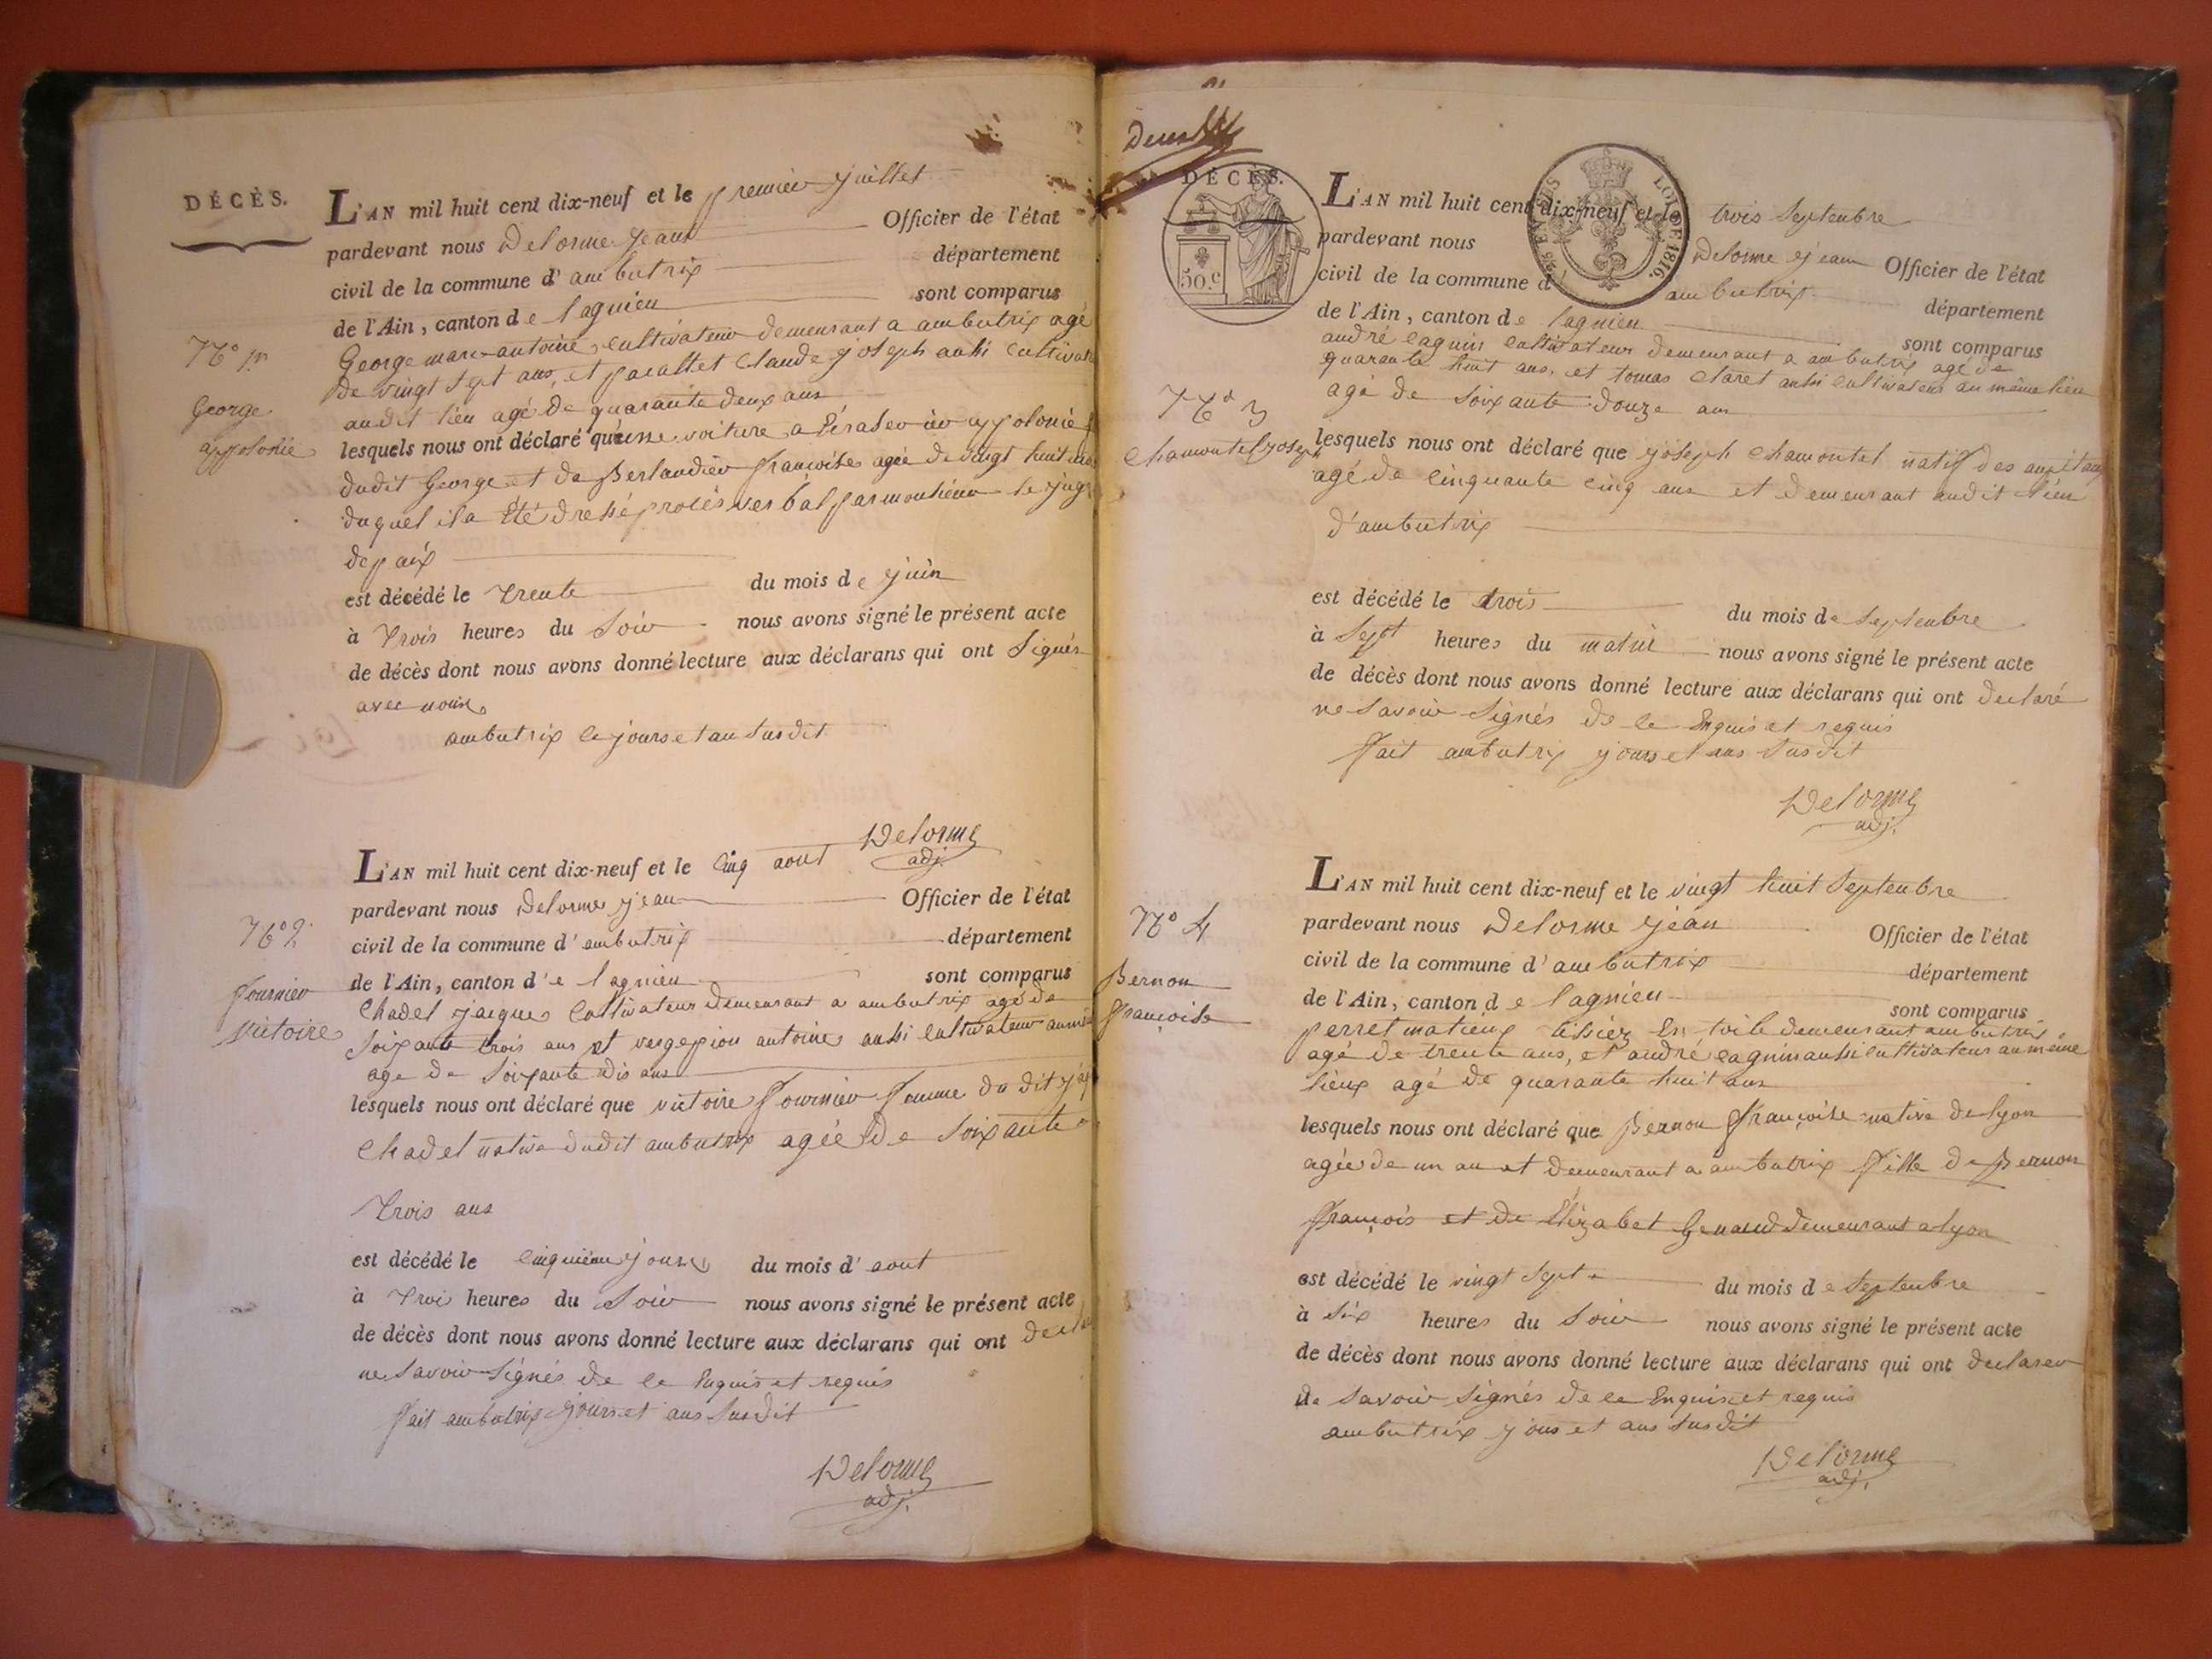 DÉCÈS.
L'AN mil huit cent dix-neuf et le premier juillet
pardevant nous Delorme jean Officier de l'état
civil de la commune d'ambutrix département
de l'Ain, canton de lagnieu sont comparus
N° 1er
George marc antoine, cultivateur demeurant a ambutrix agé
de vingt sept ans, et pacallet Claude joseph aussi cultivat
George
audit lieu agé de quarante deux ans
appolonie
lesquels nous ont déclaré qu'une voiture a écrasé appolonie
dudit George et de Berlandier françoise agée de vingt huit mois
duquel il a été dressé procés verbal par monsieur le juge
de paix
est décédé le Trente du mois de juin
à Trois heures du Soir nous avons signé le présent acte
de décès dont nous avons donné lecture aux déclarans qui ont Signés
avec nous
ambutrix le jours et an susdit
Delorme
adj.
L'AN mil huit cent dix-neuf et le Cinq aout
pardevant nous Delorme jean Officier de l'état
N° 2
civil de la commune d'ambutrix département
de l'Ain, canton d'e lagnieu sont comparus
fournier
Chadel jacques Cultivateur demeurant a ambutrix agé de
victoire
Soixante trois ans et antoine aussi cultivateur au
age de Soixante dis ans
lesquels nous ont déclaré que victoire fournier femme du dit
Chadel native dudit ambutrix agée de Soixante
Trois ans
est décédé le cinquieme jours du mois d'aout
à Trois heures du Soir nous avons signé le présent acte
de décès dont nous avons donné lecture aux déclarans qui ont
ne Savoir Signés de ce Enquis et requis
fait ambutrix jours et ans Susdit
Delorme
adj.
DÉCÈS.
50 c
LOI DE 1816.
L'AN mil huit cent dix-neuf et le trois Septembre
pardevant nous Delorme jean Officier de l'état
civil de la commune d'ambutrix département
de l'Ain, canton de lagnieu sont comparus
andré cagnin cultivateur demeurant a ambutrix agé de
quarante huit ans, et tomas Claret aussi cultivateur au même lieu
N° 3
agé de soixante douze ans
Chamontel joseph
lesquels nous ont déclaré que joseph Chamontel natif des
agé de cinquante cinq ans et demeurant audit lieu
d'ambutrix
est décédé le trois du mois de Septembre
à Sept heures du matin nous avons signé le présent acte
de décès dont nous avons donné lecture aux déclarans qui ont declaré
ne Savoir Signés de ce Enquis et requis
fait ambutrix jours et ans Susdit
Delorme
adj.
L'AN mil huit cent dix-neuf et le vingt huit Septembre
N° 4
pardevant nous Delorme jean Officier de l'état
civil de la commune d'ambutrix département
Bernon
françoise
de l'Ain, canton de lagnieu sont comparus
perret matieux tissiez En toile demeurant ambutrix
agé de trente ans, et andré cagnin aussi cultivateur au même
lieux agé de quarante huit ans
lesquels nous ont déclaré que Bernon françoise native de lyon
agée de un an et demeurant a ambutrix fille de Bernon
françois et de Elizabet demeurant a lyon
est décédé le vingt Sept du mois de Septembre
à Six heures du Soir nous avons signé le présent acte
de décès dont nous avons donné lecture aux déclarans qui ont declarer
de Savoir Signés de ce Enquis et requis
ambutrix jous et ans susdit
Delorme
adj.